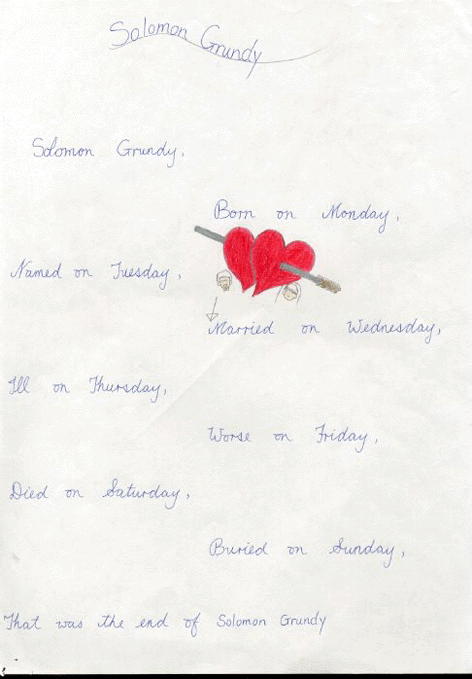 Solomon Grundy
Solomon Grundy,
Born on Monday,
Named on Tuesday,
Married on Wednesday,
Ill on Thursday,
Worse on Friday,
Died on Saturday,
Buried on Sunday,
That was the end of Solomon Grundy